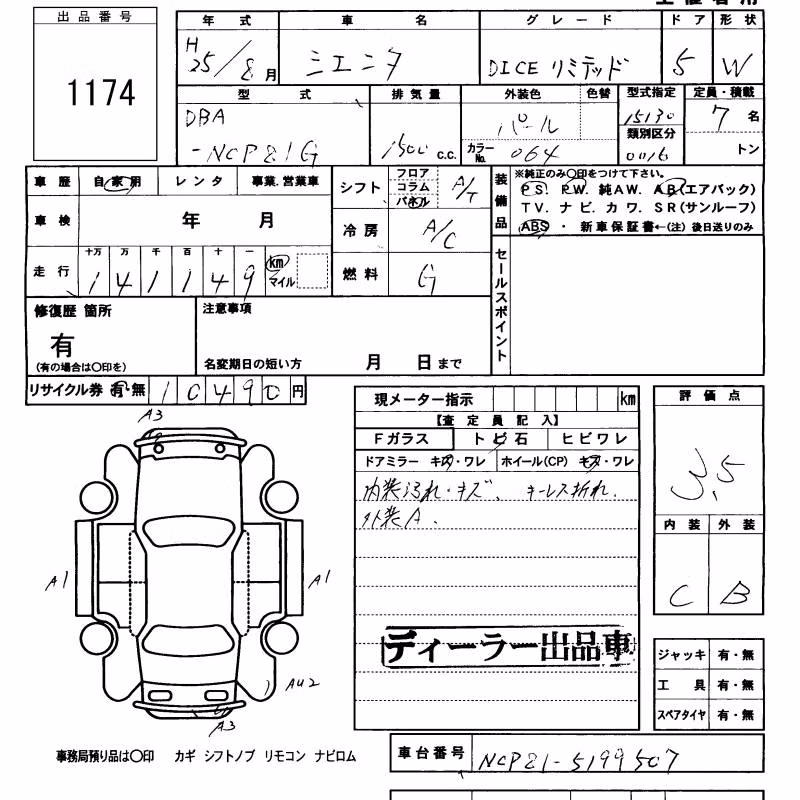 出品番号
1174
年式 車名 グレード ドア 形状
H25/8月 シエンタ DICE リミテッド 5 W
型式 排気量 外装色 色替 型式指定 定員・積載
DBA
-NCP81G 1500 c.c. パール 15130 7名
カラーNo. 064 類別区分 0016 トン
車歴 自家用 レンタ 事業.営業車
シフト フロア コラム パネル A/T
装備品 ※純正のみ○印をつけて下さい。
PS. PW. 純AW. AB(エアバック)
TV. ナビ. カワ. SR(サンルーフ)
ABS・新車保証書←(注)後日送りのみ
車検 年 月
冷房 A/C
走行 十万 万 千 百 十 一
141149 km マイル
燃料 G
セールスポイント
修復歴 箇所
有
(有の場合は○印を)
注意事項
名変期日の短い方 月 日まで
リサイクル券 有・無 10490円
現メーター指示 km
【査定員記入】
Fガラス トビ石 ヒビワレ
ドアミラー キズ・ワレ ホイール(CP) キズ・ワレ
内装汚れ・キズ、キーレス折れ.
外装A.
ディーラー出品車
評価点
3.5
内装 外装
C B
A3
A1 A1
AU2
A3
ジャッキ 有・無
工具 有・無
スペアタイヤ 有・無
事務局預り品は○印 カギ シフトノブ リモコン ナビロム
車台番号 NCP81-5199507